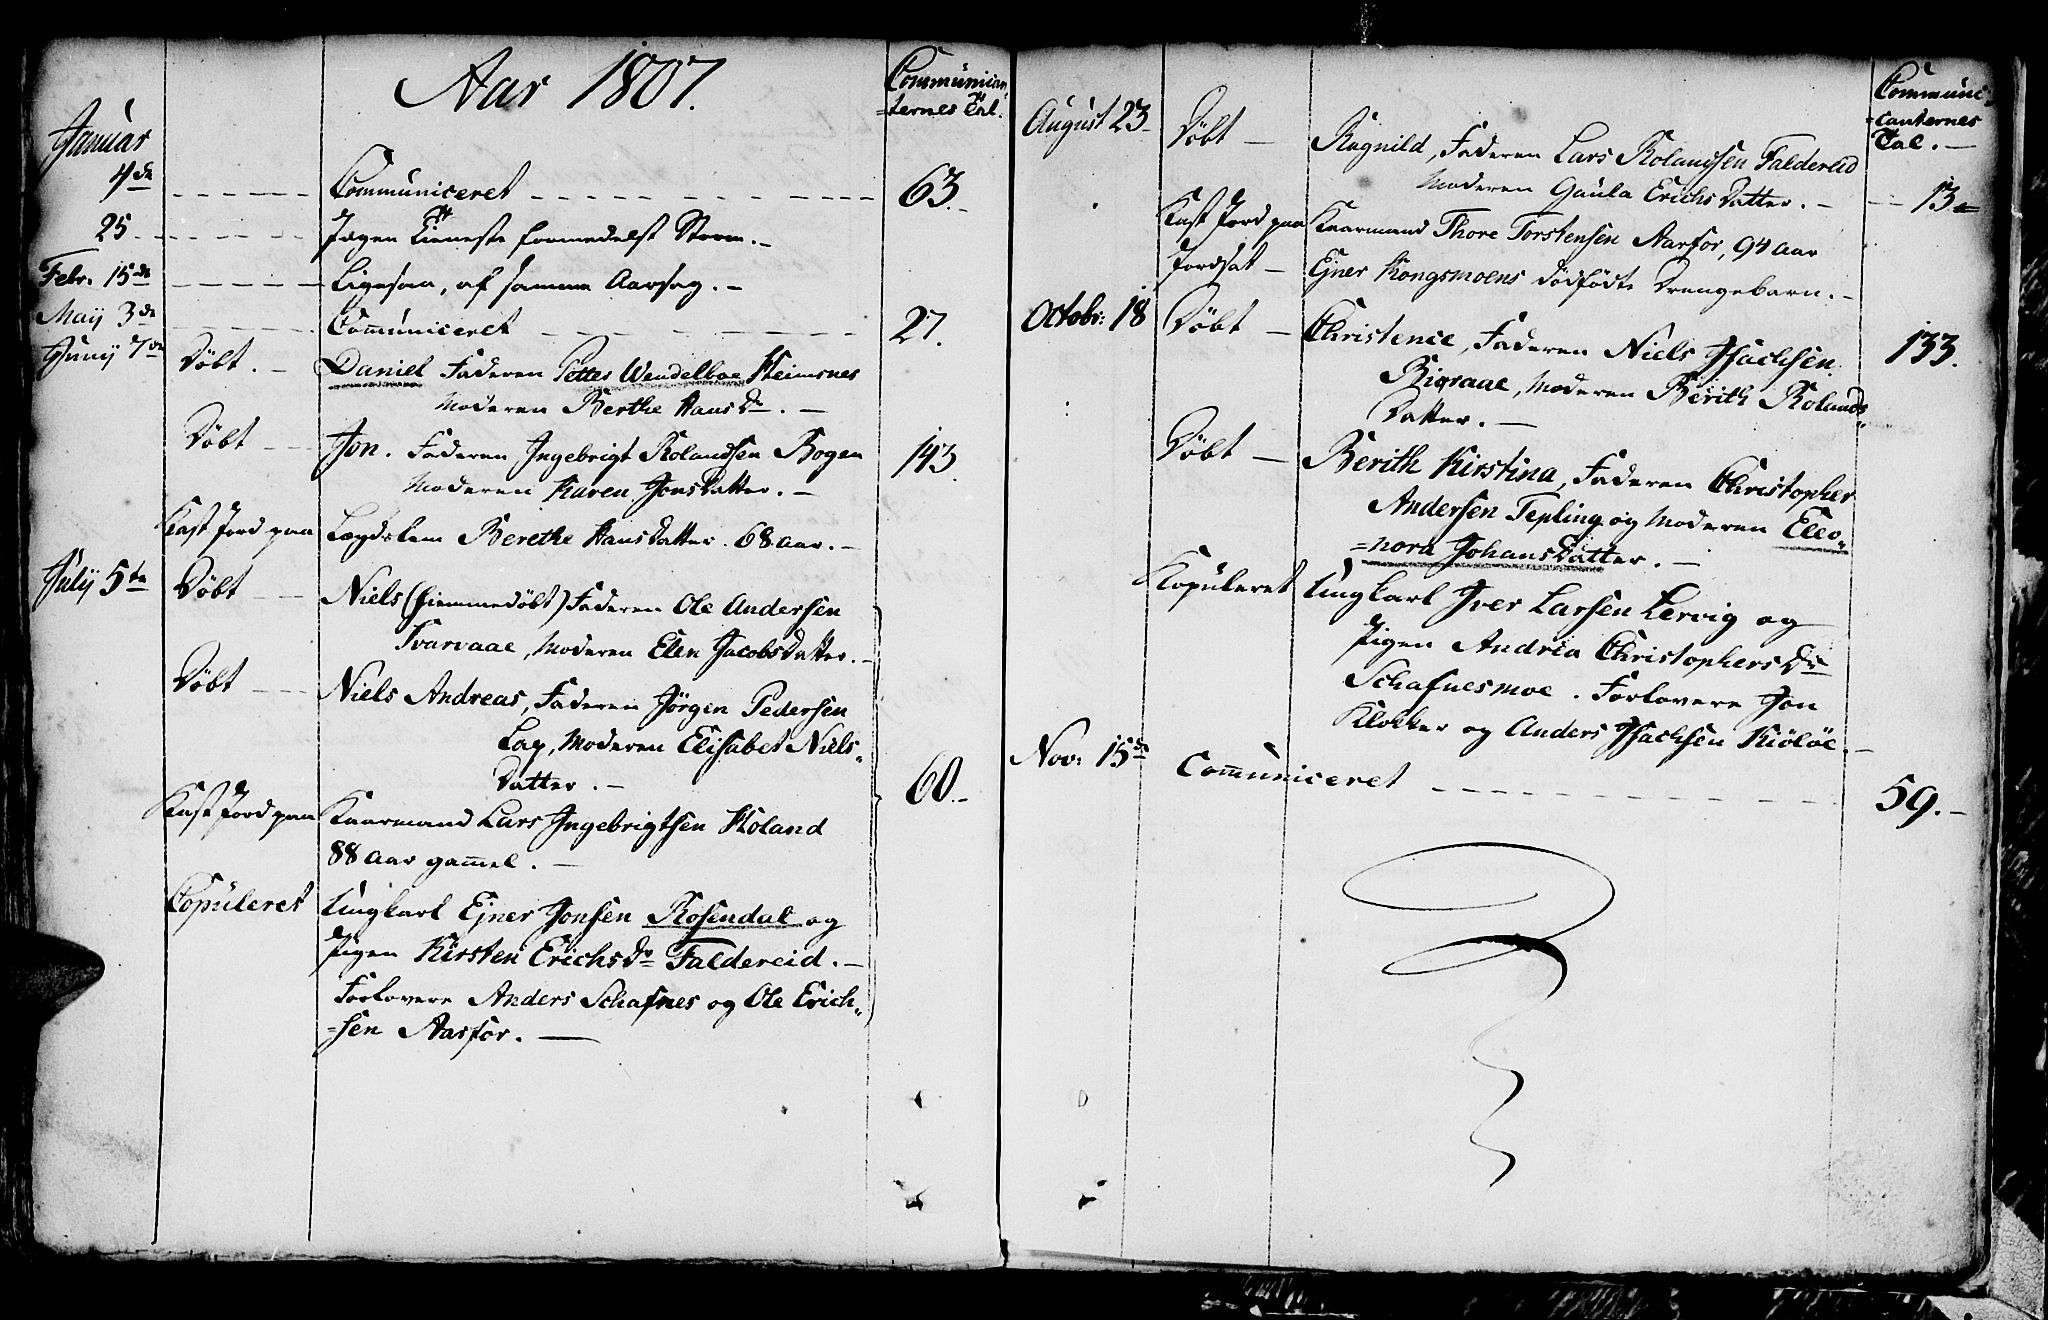 Aar 1807.
Communican-
=ternes Tal.
Januar
4de Communiceret 63.
25 Ingen Tieneste formedelst Storm.
Febr. 15de Ligesaa, af samme Aarsag.
Maij 3de Communiceret 27.
Junij 7de Döbt. Daniel Faderen Petter Wendelboe Heimsnes
Moderen Berthe Hans Dr.
Döbt Jon. Faderen Ingebrigt Rolandsen Bogen 143.
Moderen Karen Jons Datter.
Kast Jord paa Lægdslem Berethe Hans Datter. 68 Aar.
Julij 5te Döbt Niels (hiemmedöbt) Faderen Ole Andersen
Svarvaae, Moderen Elen Jacobs Datter.
Döbt Niels Andreas, Faderen Jörgen Pedersen
Lap, Moderen Elisabet Niels-
Datter. 60.
Kast Jord paa Kaarmand Lars Ingebrigtsen Roland
88 Aar gammel.
Copuleret Ungkarl Ejner Jonsen Rosendal og
Pigen Kirsten Erichs Dr Faldereid.
Forlovere Anders Schafnes og Ole Erich-
=sen Aarfor.
Communi-
=canternes
Tal.
August 23 Döbt Ragnild, Faderen Lars Rolandsen Faldereid
Moderen Gaula Erichs Datter. 13
Kast Jord paa Kaarmand Thore Torstensen Aarfor, 94 Aar
Jordsat Ejner Kongsmoens dödfödte Drengebarn.
Octobr: 18 Döbt Christence, Faderen Niels Isachsen 133.
Bigraae, Moderen Berith Rolands-
Datter.
Döbt Berith Kirstina, Faderen Christopher
Andersen Tepling og Moderen Eleo-
=nora Johans Datter.
Kopuleret Ungkarl Iver Larsen Lervig og
Pigen Andria Christophers Dr
Schafnesmoe. Forlovere Jon
Klokker og Anders Isachsen Kiölöe.
Nov: 15de Communiceret 59.